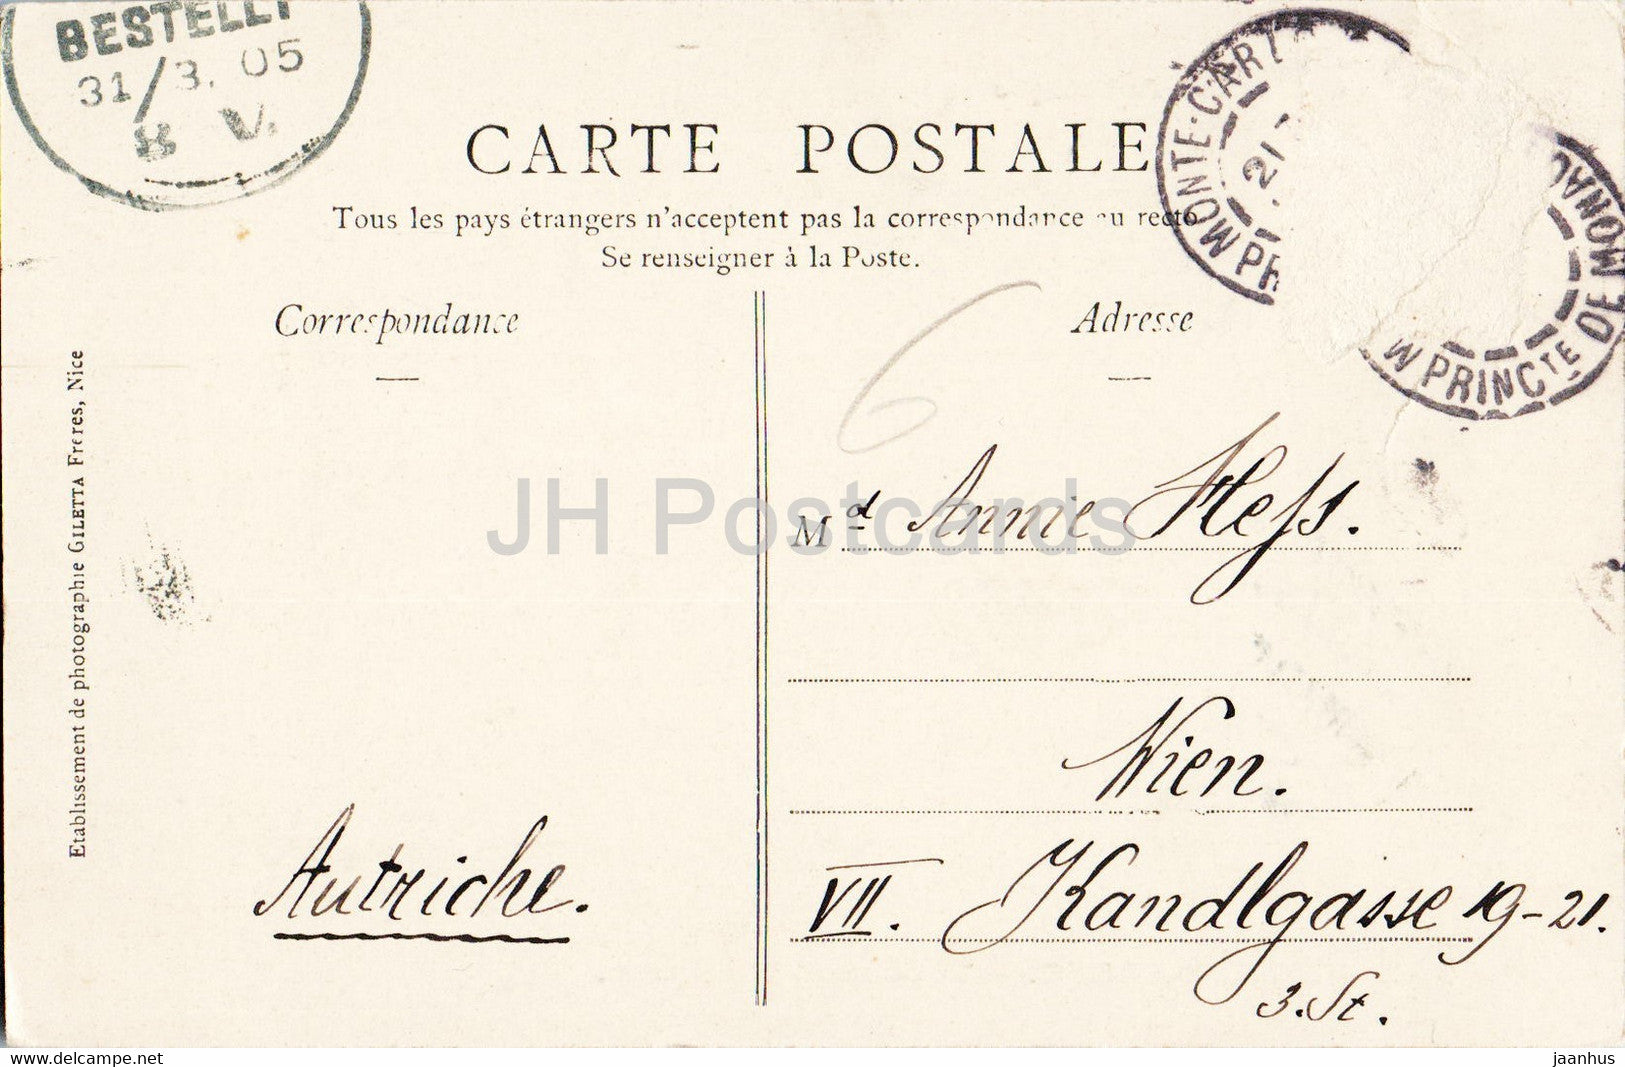 BESTELLT
31/3. 05
8 V.
MONTE-CARLO
21
PRINCTE DE MONACO
CARTE POSTALE
Tous les pays étrangers n'acceptent pas la correspondance au recto
Se renseigner à la Poste.
Correspondance
Adresse
6
Etablissement de photographie GILETTA Freres, Nice
JH Postcards
Md Annie Hess.
Wien.
Autriche.
VII. Kandlgasse 19-21.
3. St.
www.delcampe.net
jaanhus